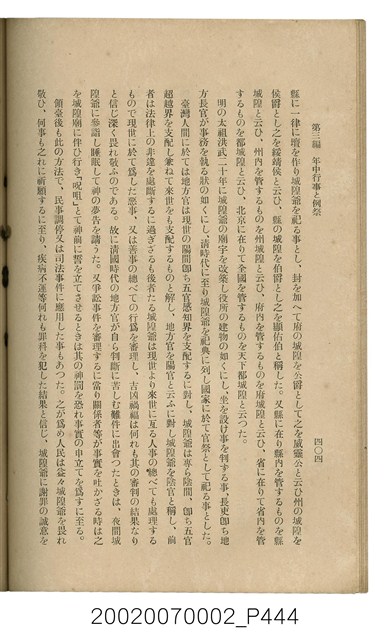 第三編　年中行事と例祭
四〇四
縣に一律に壇を作り城隍爺を祀る事とし、封を加へて府の城隍を公爵として之を威靈公と云ひ州の城隍を
侯爵とし之を綏靖侯と云ひ、縣の城隍を伯爵とし之を顯佑伯と稱した。又縣に在り縣內を管するものを縣
城隍と云ひ、州內を管するものを州城隍と云ひ、府內を管するものを府城隍と云ひ、省に在りて省內を管
するものを都城隍と云ひ、北京に在りて全國を管するものを天下都城隍と云つた。
明の太祖洪武二十年に城隍爺の廟宇を改築し役所の建物の如くにし、坐を設け事を判する事、長吏卽ち地
方長官が事務を執る狀の如くにし、清時代に至り城隍爺を祀典に列し國家に於て官祭として祀る事とした。
臺灣人間に於ては地方官は現世の陽間卽ち五官感知界を支配するに對し、城隍爺は專ら陰間、卽ち五官
超越界を支配し兼ねて來世をも支配するものと解し、地方官を陽官と云ふに對し城隍爺を陰官と稱し、前
者は法律上の非違を處斷するに過ぎざるも後者たる城隍爺は現世より來世に亙る人事の總べても處理する
もので現世に於て爲した惡事、又は善事の總べての行爲を審理し、吉凶禍福は何れも其の審判の結果なり
と信じ深く畏れ敬ふのである。故に清國時代の地方官が自ら判斷に苦しむ難件に出會つたときは、夜間城
隍爺に參詣し睡眠して神の夢告を請うた。又爭訟事件を審理するに當り關係者等が事實を吐かざる時は之
を城隍廟に伴ひ行き『呪咀』とて神前に誓を立てさせるときは其の神罰を恐れ事實の申立てを爲すに至る。
領臺後も此の方法で、民事調停又は司法事件に應用した事もあつた。之が爲め人民は益々城隍爺を畏れ
敬ひ、何事も之れに祈願するに至り、疾病不運等何れも罪科を犯した結果と信じ、城隍爺に謝罪の誠意を
20020070002_P444